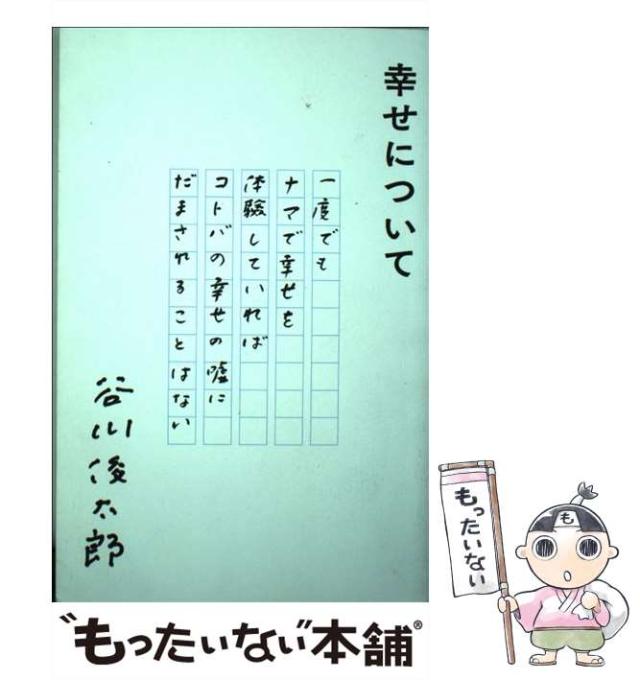 幸せについて
一度でも
ナマで幸せを
体験していれば
コトバの幸せの嘘に
だまされることはない
谷川俊太郎
もったいない
も
“もったいない”本舗®